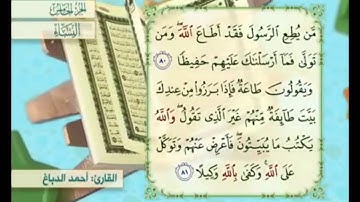 الجزء الخامس
النساء
مَّن يُطِعِ الرَّسُولَ فَقَدْ أَطَاعَ اللَّهَ ۖ وَمَن
تَوَلَّىٰ فَمَا أَرْسَلْنَاكَ عَلَيْهِمْ حَفِيظًا ٨٠
وَيَقُولُونَ طَاعَةٌ فَإِذَا بَرَزُوا مِنْ عِندِكَ
بَيَّتَ طَائِفَةٌ مِّنْهُمْ غَيْرَ الَّذِي تَقُولُ ۖ وَاللَّهُ
يَكْتُبُ مَا يُبَيِّتُونَ ۖ فَأَعْرِضْ عَنْهُمْ وَتَوَكَّلْ
عَلَى اللَّهِ ۚ وَكَفَىٰ بِاللَّهِ وَكِيلًا ٨١
القارئ: أحمد الدباغ